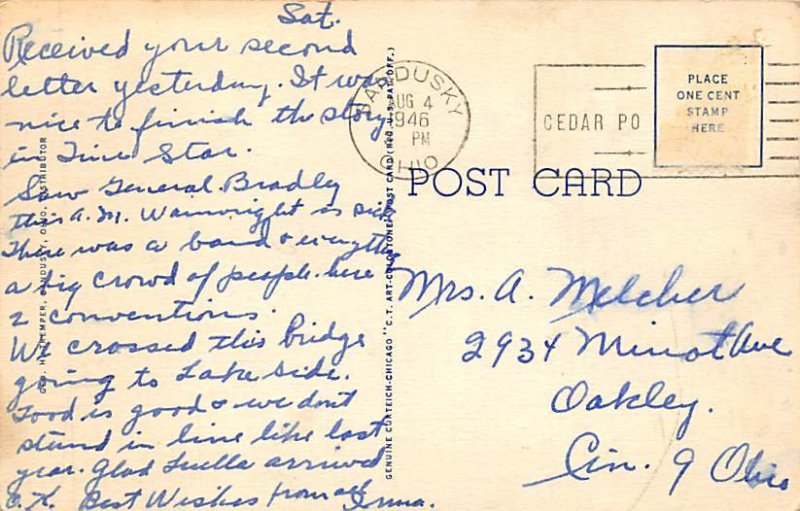 Sat.
Received your second
letter yesterday. It was
nice to finish the story
in Time Star.
Saw General Bradly
this A.M. Wainwright is sick
There was a band & everything
a big crowd of people here
2 conventions.
We crossed this bridge
going to Lake Side.
Food is good & we don't
stand in line like last
year. Glad Luella arrived
O.K. Best Wishes from all
Irma.
DISTRIBUTOR
GENUINE CURTEICH-CHICAGO "C.T. ART-COLORTONE" POST CARD (REG. U.S. PAT. OFF.)
SANDUSKY
AUG 4
1946
PM
OHIO
CEDAR PO
PLACE
ONE CENT
STAMP
HERE
POST CARD
Mrs. A. Melcher
2934 Minot Ave
Oakley.
Cin. 9 Ohio